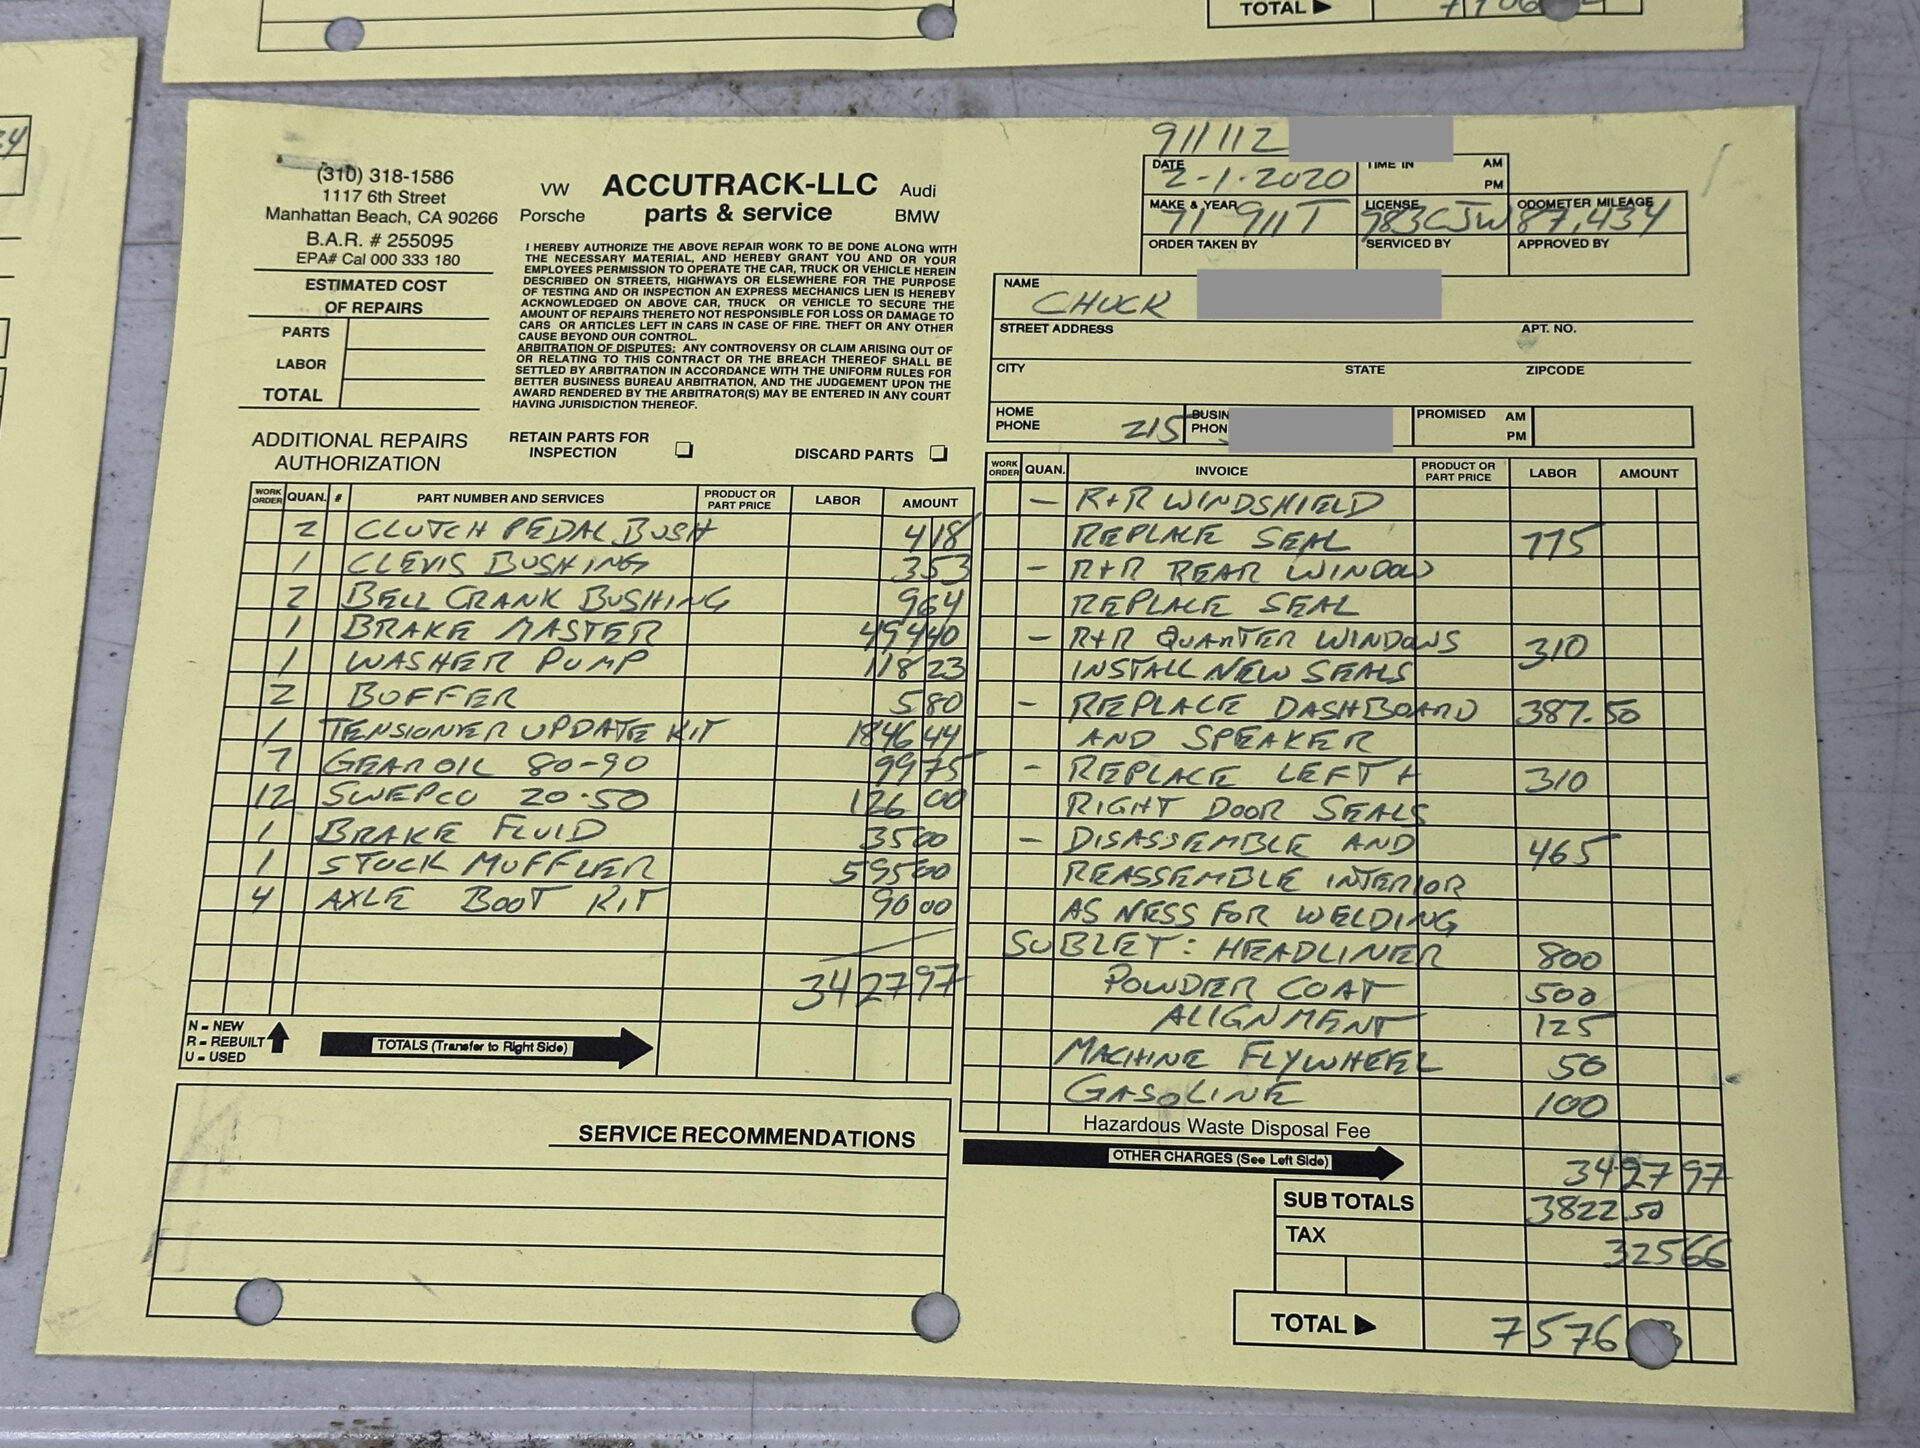 TOTAL ▶
911112
(310) 318-1586
1117 6th Street
Manhattan Beach, CA 90266
B.A.R. # 255095
EPA# Cal 000 333 180
VW ACCUTRACK-LLC Audi
Porsche parts & service BMW
I HEREBY AUTHORIZE THE ABOVE REPAIR WORK TO BE DONE ALONG WITH
THE NECESSARY MATERIAL, AND HEREBY GRANT YOU AND OR YOUR
EMPLOYEES PERMISSION TO OPERATE THE CAR, TRUCK OR VEHICLE HEREIN
DESCRIBED ON STREETS, HIGHWAYS OR ELSEWHERE FOR THE PURPOSE
OF TESTING AND OR INSPECTION AN EXPRESS MECHANICS LIEN IS HEREBY
ACKNOWLEDGED ON ABOVE CAR, TRUCK OR VEHICLE TO SECURE THE
AMOUNT OF REPAIRS THERETO NOT RESPONSIBLE FOR LOSS OR DAMAGE TO
CARS OR ARTICLES LEFT IN CARS IN CASE OF FIRE. THEFT OR ANY OTHER
CAUSE BEYOND OUR CONTROL.
ARBITRATION OF DISPUTES: ANY CONTROVERSY OR CLAIM ARISING OUT OF
OR RELATING TO THIS CONTRACT OR THE BREACH THEREOF SHALL BE
SETTLED BY ARBITRATION IN ACCORDANCE WITH THE UNIFORM RULES FOR
BETTER BUSINESS BUREAU ARBITRATION, AND THE JUDGEMENT UPON THE
AWARD RENDERED BY THE ARBITRATOR(S) MAY BE ENTERED IN ANY COURT
HAVING JURISDICTION THEREOF.
ESTIMATED COST
OF REPAIRS
PARTS
LABOR
TOTAL
DATE 2-1-2020 TIME IN AM PM
MAKE & YEAR 71 911T LICENSE 983CJW ODOMETER MILEAGE 87,434
ORDER TAKEN BY SERVICED BY APPROVED BY
NAME CHUCK
STREET ADDRESS APT. NO.
CITY STATE ZIPCODE
HOME PHONE 215 BUSIN PHON PROMISED AM PM
ADDITIONAL REPAIRS
AUTHORIZATION
RETAIN PARTS FOR
INSPECTION
DISCARD PARTS
WORK ORDER QUAN. # PART NUMBER AND SERVICES PRODUCT OR PART PRICE LABOR AMOUNT
2 CLUTCH PEDAL BUSH 4 18
1 CLEVIS BUSHING 3 53
2 BELL CRANK BUSHING 9 64
1 BRAKE MASTER 494 40
1 WASHER PUMP 118 23
2 BUFFER 5 80
1 TENSIONER UPDATE KIT 1846 44
7 GEAR OIL 80-90 99 75
12 SWEPCO 20-50 126 00
1 BRAKE FLUID 35 00
1 STOCK MUFFLER 595 00
4 AXLE BOOT KIT 90 00
3427 97
N - NEW
R - REBUILT
U - USED
TOTALS (Transfer to Right Side)
SERVICE RECOMMENDATIONS
WORK ORDER QUAN. INVOICE PRODUCT OR PART PRICE LABOR AMOUNT
- R+R WINDSHIELD
REPLACE SEAL 775
- R+R REAR WINDOW
REPLACE SEAL
- R+R QUARTER WINDOWS 310
INSTALL NEW SEALS
- REPLACE DASHBOARD 387.50
AND SPEAKER
- REPLACE LEFT + 310
RIGHT DOOR SEALS
- DISASSEMBLE AND 465
REASSEMBLE INTERIOR
AS NESS FOR WELDING
SUBLET: HEADLINER 800
POWDER COAT 500
ALIGNMENT 125
MACHINE FLYWHEEL 50
GASOLINE 100
Hazardous Waste Disposal Fee
OTHER CHARGES (See Left Side) 3427 97
SUB TOTALS 3822.50
TAX 325 66
TOTAL ▶ 7576